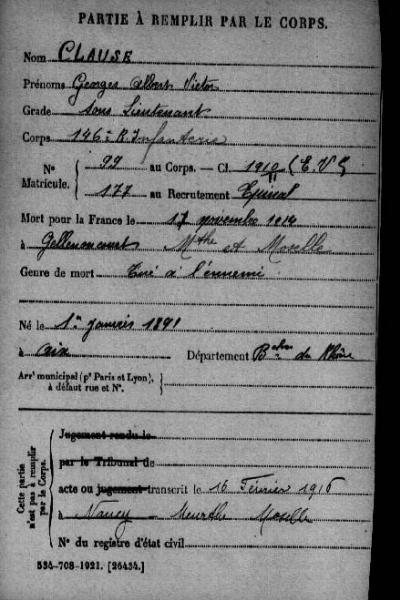 PARTIE À REMPLIR PAR LE CORPS.
Nom CLAUSE
Prénoms Georges Albert Victor
Grade Sous Lieutenant
Corps 146e R. Infanterie
N° Matricule. 99 au Corps. — Cl. 1910 (E.V)
177 au Recrutement Epinal
Mort pour la France le 17 novembre 1914
à Gellenoncourt Mthe et Moselle
Genre de mort Tué à l'ennemi
Né le 1er janvier 1891
à Aix Département Bches du Rhône
Arrt municipal (pr Paris et Lyon), à défaut rue et N°.
Cette partie n'est pas à remplir par le Corps.
Jugement rendu le
par le Tribunal de
acte ou jugement transcrit le 16 Février 1916
à Nancy Meurthe Moselle
N° du registre d'état civil
534-708-1921. [26434.]